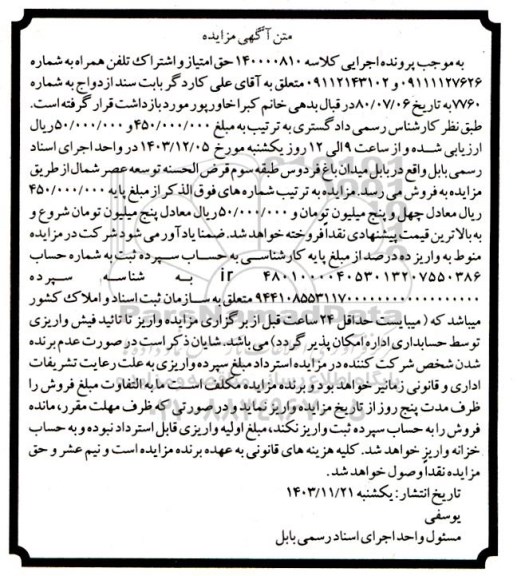 متن آگهی مزایده
به موجب پرونده اجرایی کلاسه ۱۴۰۰۰۰۸۱۰ حق امتیاز و اشتراک تلفن همراه به شماره
۰۹۱۱۱۱۲۷۶۲۶ و ۰۹۱۱۲۱۴۳۱۰۲ متعلق به آقای علی کاردگر بابت سند ازدواج به شماره
۷۷۶۰ به تاریخ ۸۰/۰۷/۰۶ در قبال بدهی خانم کبرا خاورپور مورد بازداشت قرار گرفته است.
طبق نظر کارشناس رسمی دادگستری به ترتیب به مبلغ ۴۵۰/۰۰۰/۰۰۰ و ۵۰/۰۰۰/۰۰۰ ریال
ارزیابی شده و از ساعت ۹ الی ۱۲ روز یکشنبه مورخ ۱۴۰۳/۱۲/۰۵ در واحد اجرای اسناد
رسمی بابل واقع در بابل میدان باغ فردوس طبقه سوم قرض الحسنه توسعه عصر شمال از طریق
مزایده به فروش می رسد. مزایده به ترتیب شماره های فوق الذکر از مبلغ پایه ۴۵۰/۰۰۰/۰۰۰
ریال معادل چهل و پنج میلیون تومان و ۵۰/۰۰۰/۰۰۰ ریال معادل پنج میلیون تومان شروع و
به بالاترین قیمت پیشنهادی نقدا فروخته خواهد شد. ضمنا یادآور می شود شرکت در مزایده
منوط به واریز ده درصد از مبلغ پایه کارشناسی به حساب سپرده ثبت به شماره حساب
ir ۴۸۰۱۰۰۰۰۴۰۵۳۰۱۳۲۰۷۵۵۰۳۸۶ به شناسه سپرده
۹۴۴۱۰۸۵۵۳۱۱۷۰۰۰۰۰۰۰۰۰۰۰۰۰۰۰۰۰۰ متعلق به سازمان ثبت اسناد و املاک کشور
میباشد که (میبایست حداقل ۲۴ ساعت قبل از برگزاری مزایده واریز تا تائید فیش واریزی
توسط حسابداری اداره امکان پذیر گردد) می باشد. شایان ذکر است در صورت عدم برنده
شدن شخص شرکت کننده در مزایده استرداد مبلغ سپرده واریزی به علت رعایت تشریفات
اداری و قانونی زمانبر خواهد بود و برنده مزایده مکلف است ما به التفاوت مبلغ فروش را
ظرف مدت پنج روز از تاریخ مزایده واریز نماید و در صورتی که ظرف مهلت مقرر، مانده
فروش را به حساب سپرده ثبت واریز نکند، مبلغ اولیه واریزی قابل استرداد نبوده و به حساب
خزانه واریز خواهد شد. کلیه هزینه های قانونی به عهده برنده مزایده است و نیم عشر و حق
مزایده نقداً وصول خواهد شد.
تاریخ انتشار: یکشنبه ۱۴۰۳/۱۱/۲۱
یوسفی
مسئول واحد اجرای اسناد رسمی بابل